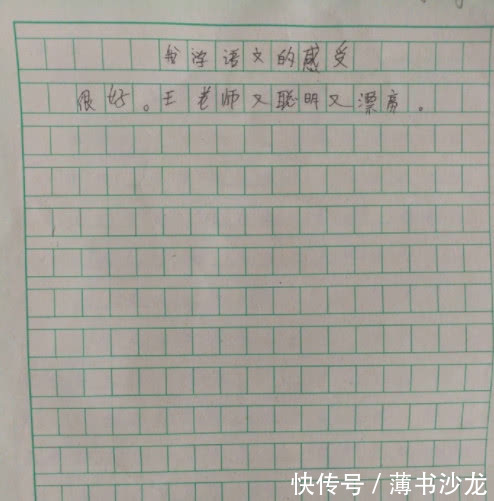 我学语文的感受
很好。王老师又聪明又漂亮。
快传号／薄书沙龙